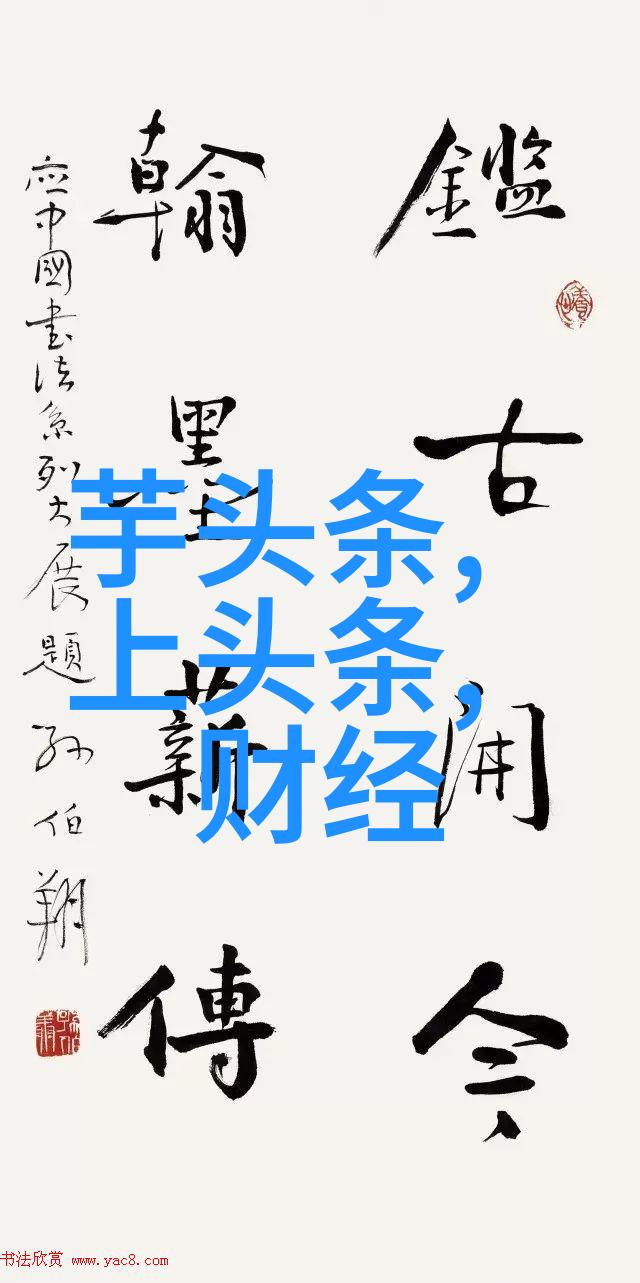 鑑古開今
翰墨薪傳
應中國書法系列大展題 孙伯翔
芋头条，
上头条，
财经
书法欣赏 www.yac8.com